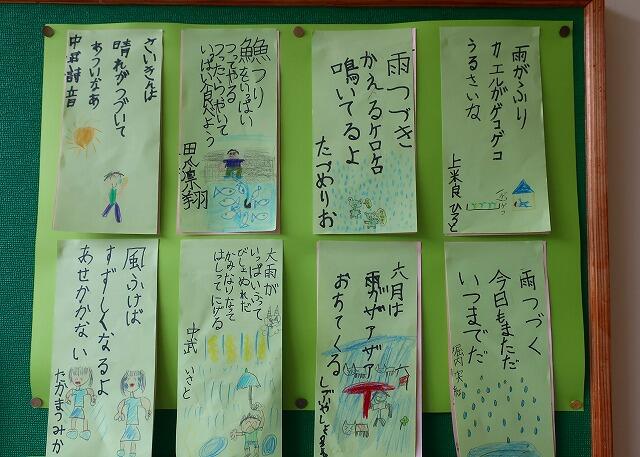 雨がふり
カエルがゲコゲコ
うるさいな
上米良 ひろと
雨つづき
かえるケロケロ
鳴いてるよ
たつめりお
魚つり
魚をいっぱい
つってやる
つったらやいて
いっぱい食べよう
さいきんは
晴れがつづいて
あついなあ
中武
雨つづく
今日もまただ
いつまでだ
堀内
六月は
雨がザアザア
おちてくる
大雨が
いっぱいふって
びしょぬれだ
かみなりなって
はしってにげる
中武 いさと
風ふけば
すずしくなるよ
あせかかない
たかまつみか